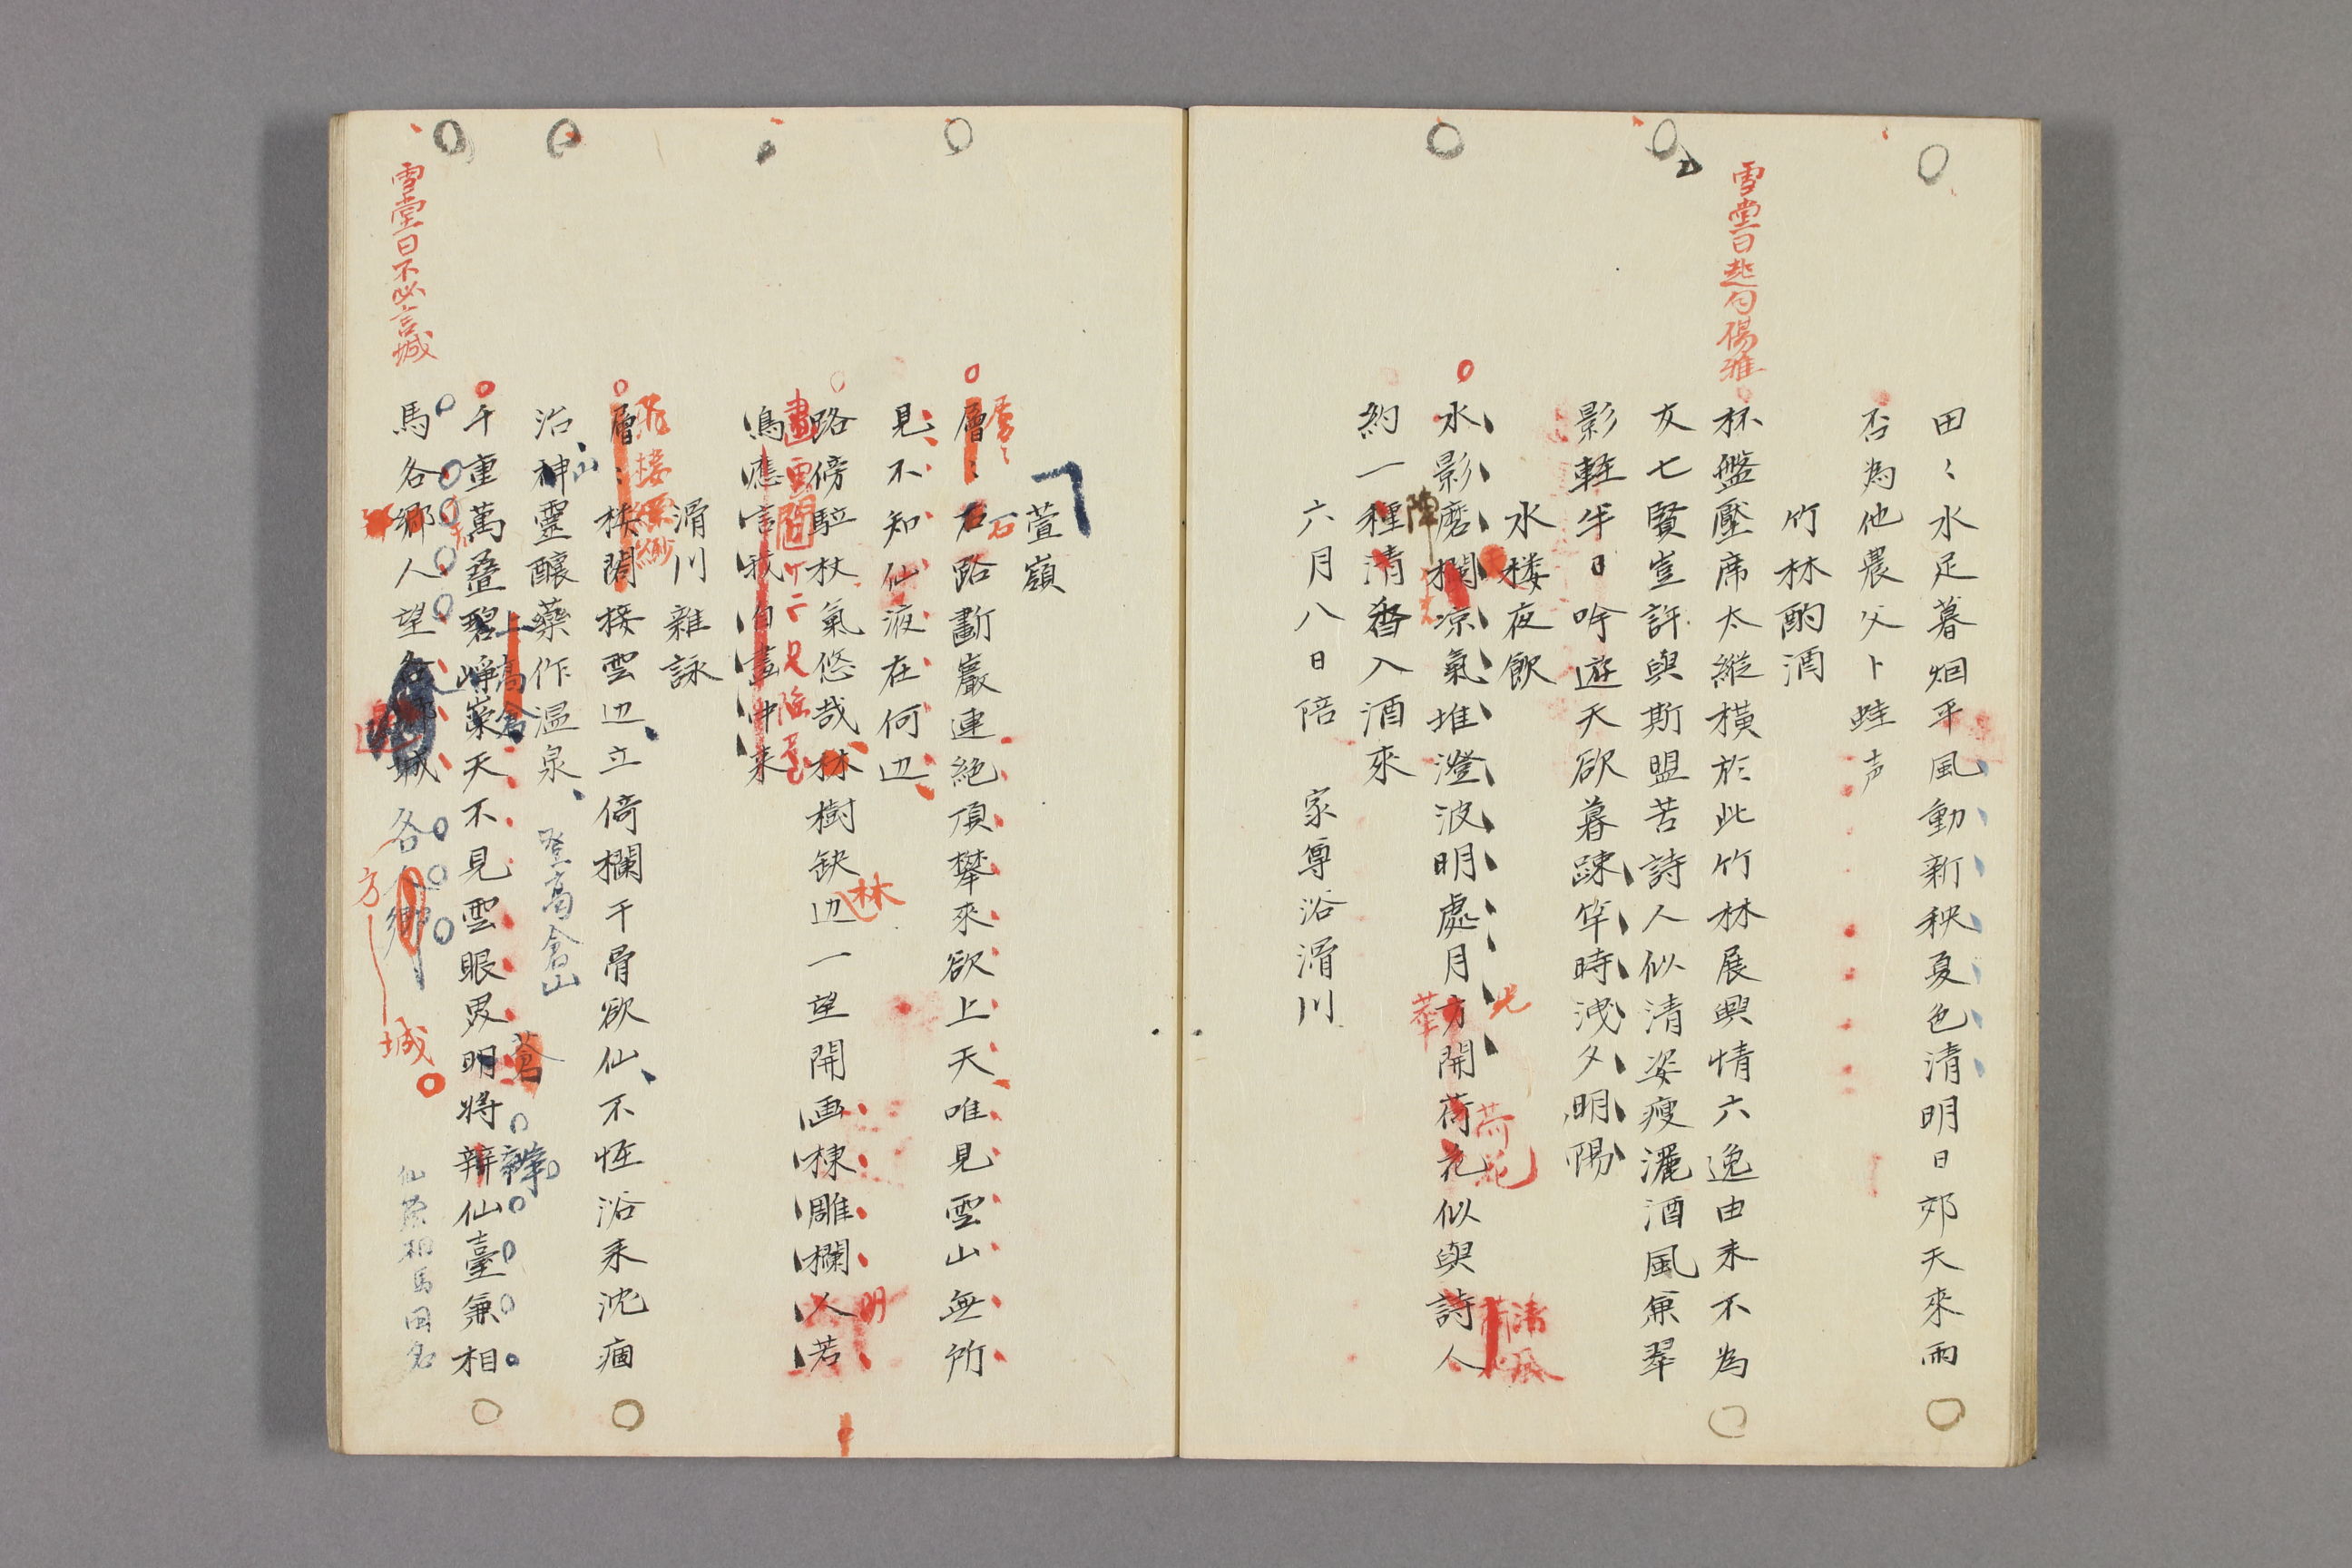 田〻水足暮烟平風動新秧夏色清明日郊天來雨
否為他農父卜蛙声
竹林酌酒
雪堂曰起句傷雅
杯盤壓席太縱橫於此竹林展興情六逸由来不為
友七賢豈許與斯盟苦詩人似清姿瘦灑酒風兼翠
影軽半日吟遊天欲暮踈竿時洩夕明陽
水楼夜飲
水影磨欄凉氣堆澄波明處月方開荷花似與詩人
光
華
荷
清風
陣
約一種清香入酒來
六月八日陪 家尊浴滑川
萱嶺
層〻石路斷巖連絶頂攀來欲上天唯見雲山無所
層〻
石
見不知仙液在何辺
路傍駐杖氣悠哉林樹缺辺一望開画棟雕欄人若
林
明
畫
鳥應言我自畫中来
滑川雜詠
層〻楼閣接雲辺立倚欄干骨欲仙不恠浴来沈痼
飛楼縹緲
治神靈釀藥作温泉
山
登高倉山
千重萬疊碧崢嶸天不見雲眼界明将辨仙臺兼相
上高倉
蒼
辨
雪堂曰不必言城
馬各郷人望
城
各人郷
方
城
仙臺相馬田名